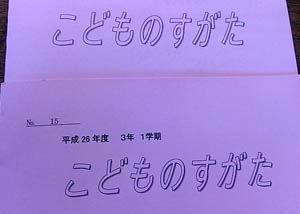 こどものすがた
No. 15
平成26年度 3年 1学期
こどものすがた